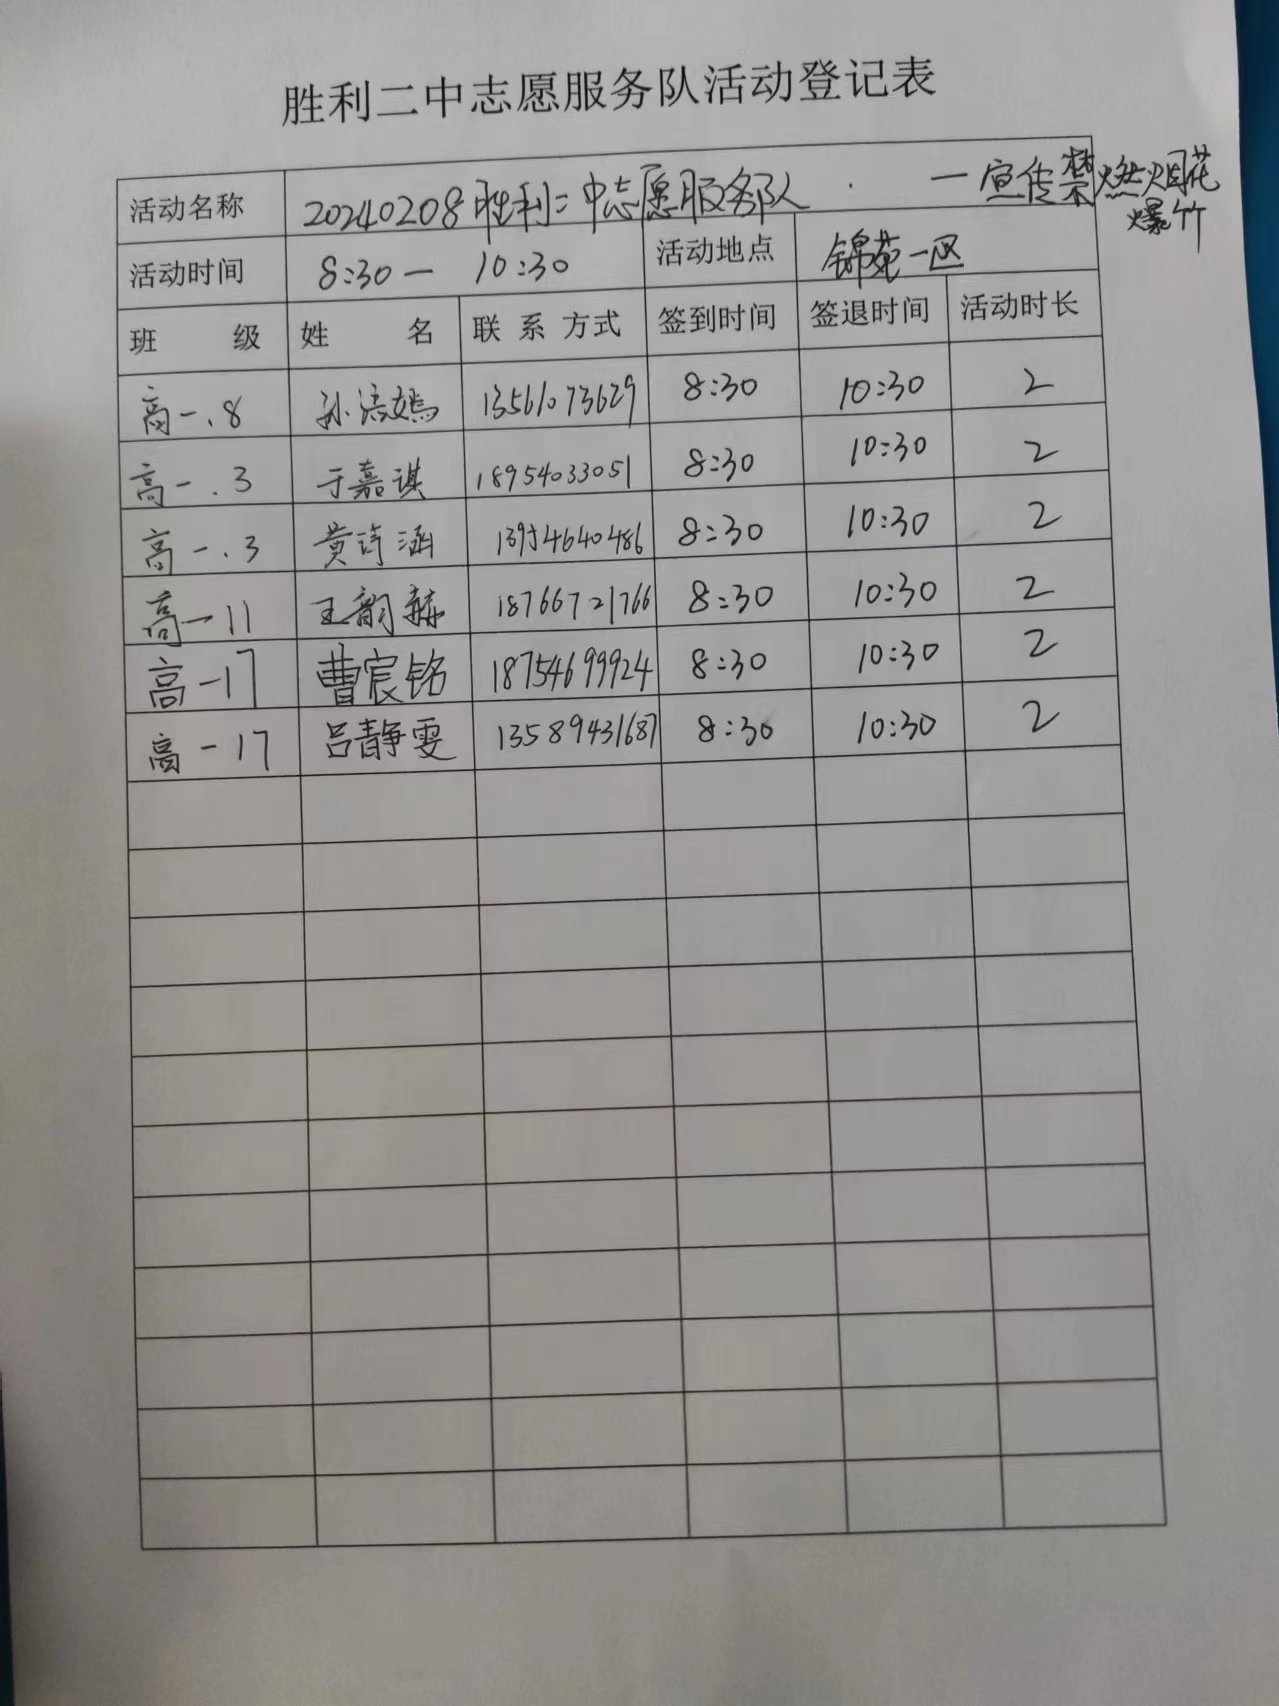 胜利二中志愿服务队活动登记表
活动名称 20240208胜利二中志愿服务队 一宣传禁燃烟花
爆竹
活动时间 8:30— 10:30 活动地点 锦苑一区
班 级 姓 名 联 系 方式 签到时间 签退时间 活动时长
高一.8 孙涪嫣 13561073629 8:30 10:30 2
高一.3 于嘉淇 18954033051 8:30 10:30 2
高一.3 黄诗涵 13954640486 8:30 10:30 2
高一11 王韵赫 18766721766 8:30 10:30 2
高一17 曹宸铭 18754699924 8:30 10:30 2
高一17 吕静雯 13589431687 8:30 10:30 2